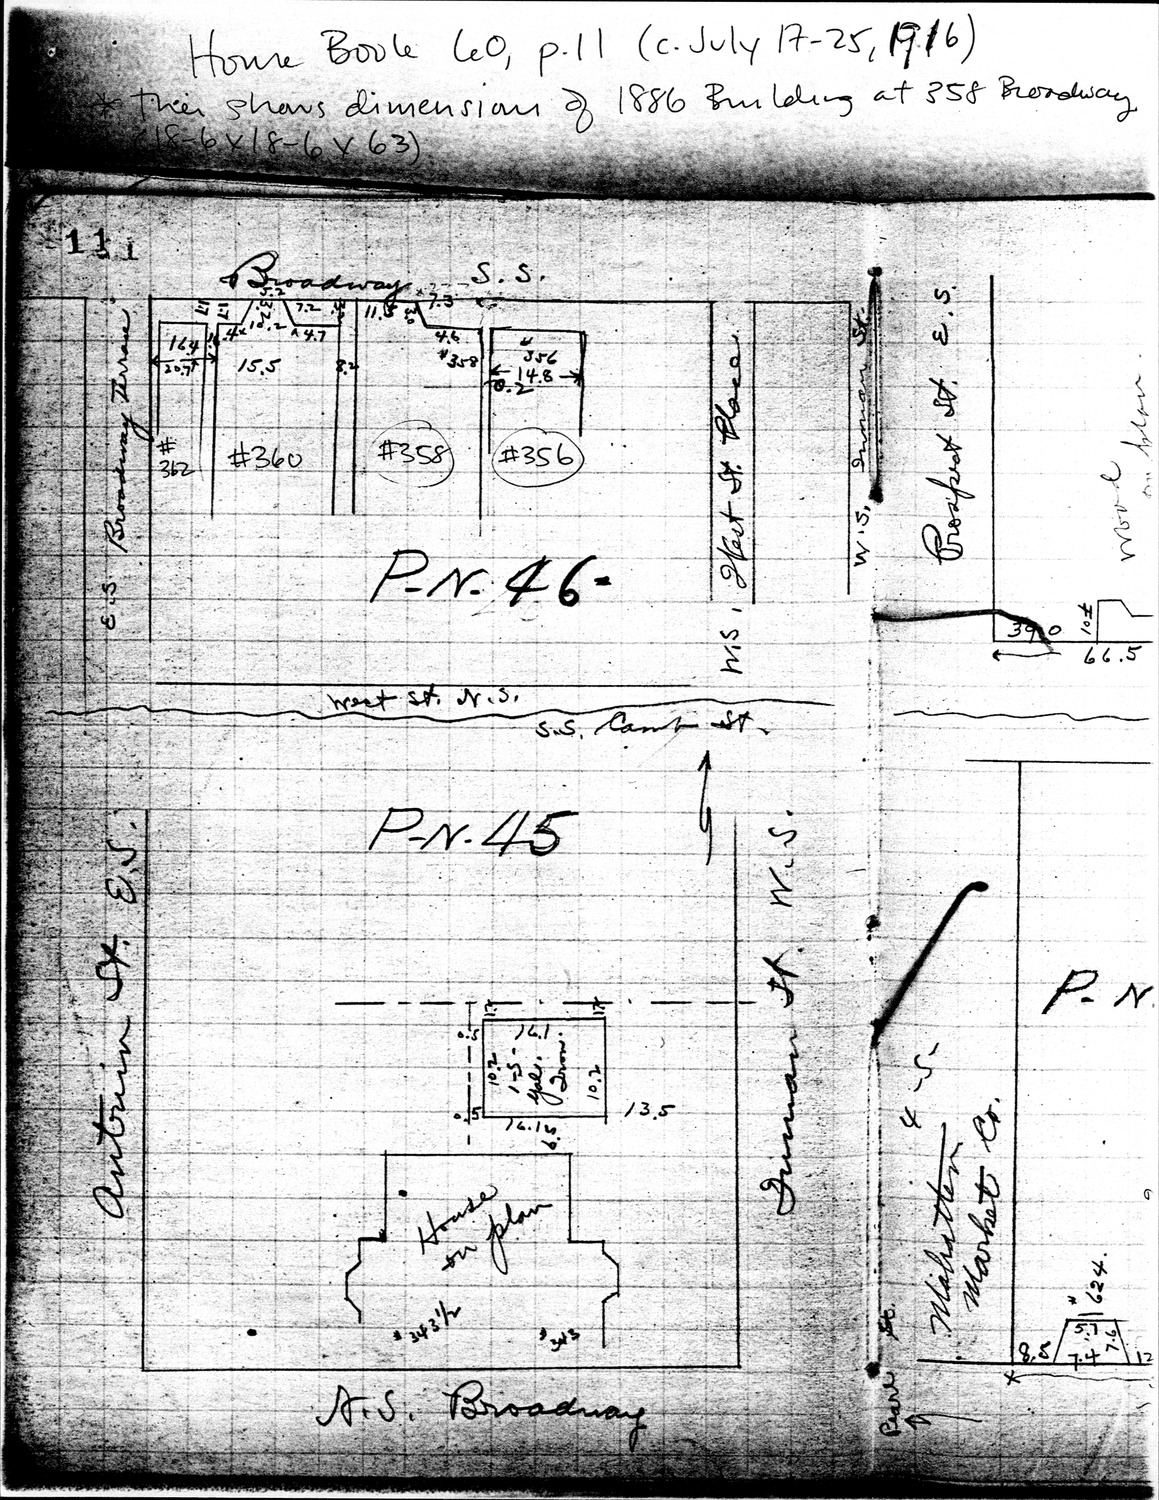 House Book 60, p.11 (c. July 17-25, 1916)
* This shows dimension of 1886 Building at 358 Broadway
(18-6 x 18-6 x 63)
11
Broadway S. S.
E.S. Broadway Terrace
16.4
20.7
#362
10.2
15.5
7.2
4.7
8.2
#360
11.5
7.3
4.6
#358
#358
#356
14.8
0.2
#356
W.S. West St. Place
W.S. Inman St.
Prospect St. E.S.
Wood on plan
39.0
10±
66.5
P-N. 46-
West St. N.S.
S.S. Camb St.
P-N. 45
Antrim St. E.S.
Inman St. W.S.
16.1
0.5
10.2
1-S-
Galv. Iron.
10.2
0.5
16.15
13.5
6.
House
on plan
#343 1/2
#343
N.S. Broadway
P-N.
4-5-
Mahatten
Market Co.
#624.
5.7
7.6
8.8
7.4
12
Pearl St.